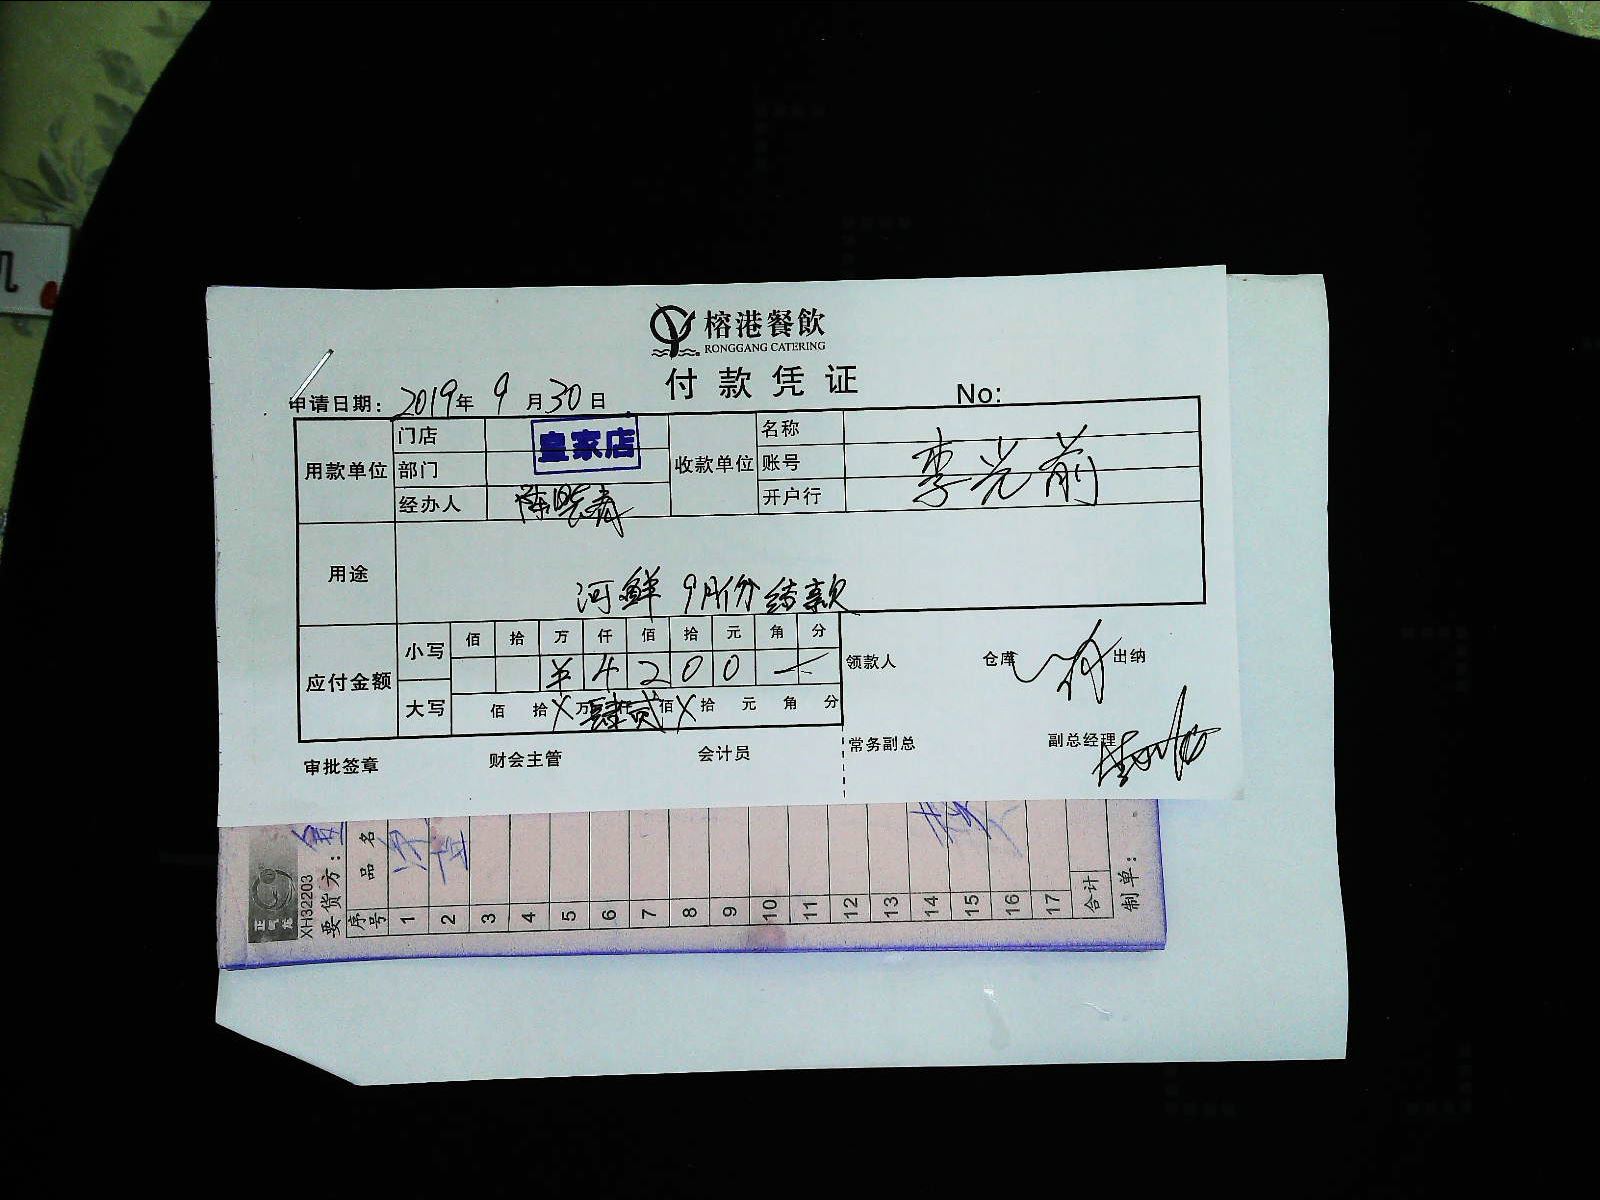 榕港餐飲
RONGGANG CATERING
付款凭证
申请日期：2019年9月30日 No:
用款单位 门店 皇家店 收款单位 名称 李光前
部门 账号
经办人 开户行
用途 河鲜 9月份结款
应付金额 小写 佰 拾 万 仟 佰 拾 元 角 分
¥ 4 2 0 0
大写 佰 拾 X 万 肆 仟 贰 佰 X 拾 元 角 分
领款人 仓库 出纳
审批签章 财会主管 会计员 常务副总 副总经理
正气龙
XH32203
要货方：
序号 品名
1
2
3
4
5
6
7
8
9
10
11
12
13
14
15
16
17
合计
制单：